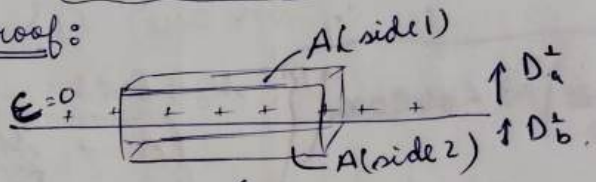 Proof:
A(side 1)
ε=0
+ + + + + + + +
↑ D⊥a
↑ D⊥b.
A(side 2)